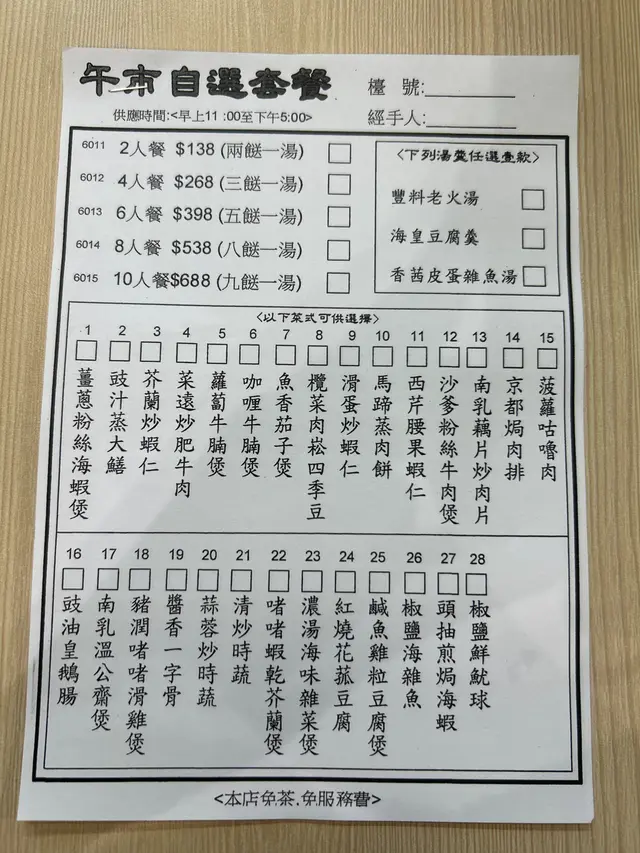 午市自選套餐
檯 號:
供應時間:<早上11:00至下午5:00>
經手人:
6011 2人餐 $138 (兩餸一湯)
6012 4人餐 $268 (三餸一湯)
6013 6人餐 $398 (五餸一湯)
6014 8人餐 $538 (八餸一湯)
6015 10人餐$688 (九餸一湯)
<下列湯羹任選壹款>
豐料老火湯
海皇豆腐羹
香茜皮蛋雜魚湯
<以下菜式可供選擇>
1 薑蔥粉絲海蝦煲
2 豉汁蒸大鱔
3 芥蘭炒蝦仁
4 菜遠炒肥牛肉
5 蘿蔔牛腩煲
6 咖喱牛腩煲
7 魚香茄子煲
8 欖菜肉崧四季豆
9 滑蛋炒蝦仁
10 馬蹄蒸肉餅
11 西芹腰果蝦仁
12 沙爹粉絲牛肉煲
13 南乳藕片炒肉片
14 京都焗肉排
15 菠蘿咕嚕肉
16 豉油皇鵝腸
17 南乳溫公齋煲
18 豬潤啫啫滑雞煲
19 醬香一字骨
20 蒜蓉炒時蔬
21 清炒時蔬
22 啫啫蝦乾芥蘭煲
23 濃湯海味雜菜煲
24 紅燒花菰豆腐
25 鹹魚雞粒豆腐煲
26 椒鹽海雜魚
27 頭抽煎焗海蝦
28 椒鹽鮮魷球
<本店免茶.免服務費>